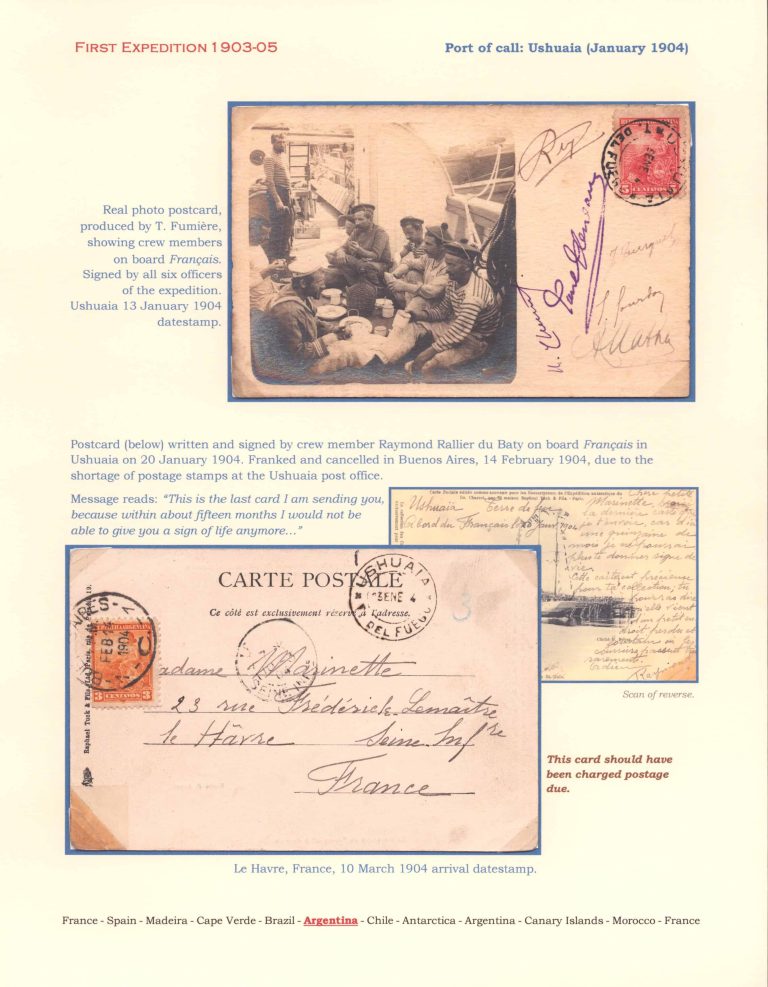 FIRST EXPEDITION 1903-05
Port of call: Ushuaia (January 1904)
Real photo postcard,
produced by T. Fumière,
showing crew members
on board Français.
Signed by all six officers
of the expedition.
Ushuaia 13 January 1904
datestamp.
T. DEL FUEGO
5 CENTAVOS 5
Rey
Postcard (below) written and signed by crew member Raymond Rallier du Baty on board Français in
Ushuaia on 20 January 1904. Franked and cancelled in Buenos Aires, 14 February 1904, due to the
shortage of postage stamps at the Ushuaia post office.
Message reads: “This is the last card I am sending you,
because within about fifteen months I would not be
able to give you a sign of life anymore…”
Chère petite
Marinette
Ushuaia Terre de feu
la dernière carte
à bord du Français le
1904
une quinzaine de
CARTE POSTALE
Ce côté est exclusivement réservé à l'adresse.
USHUAIA
13 ENE 4
T. DEL FUEGO
FEB 14
1904
3 CENTAVOS 3
Raphael Tuck & Fils
Madame Marinette
23 rue Frédérick Lemaître
le Hâvre Seine Infre
France
Scan of reverse.
This card should have
been charged postage
due.
Le Havre, France, 10 March 1904 arrival datestamp.
France - Spain - Madeira - Cape Verde - Brazil - Argentina - Chile - Antarctica - Argentina - Canary Islands - Morocco - France